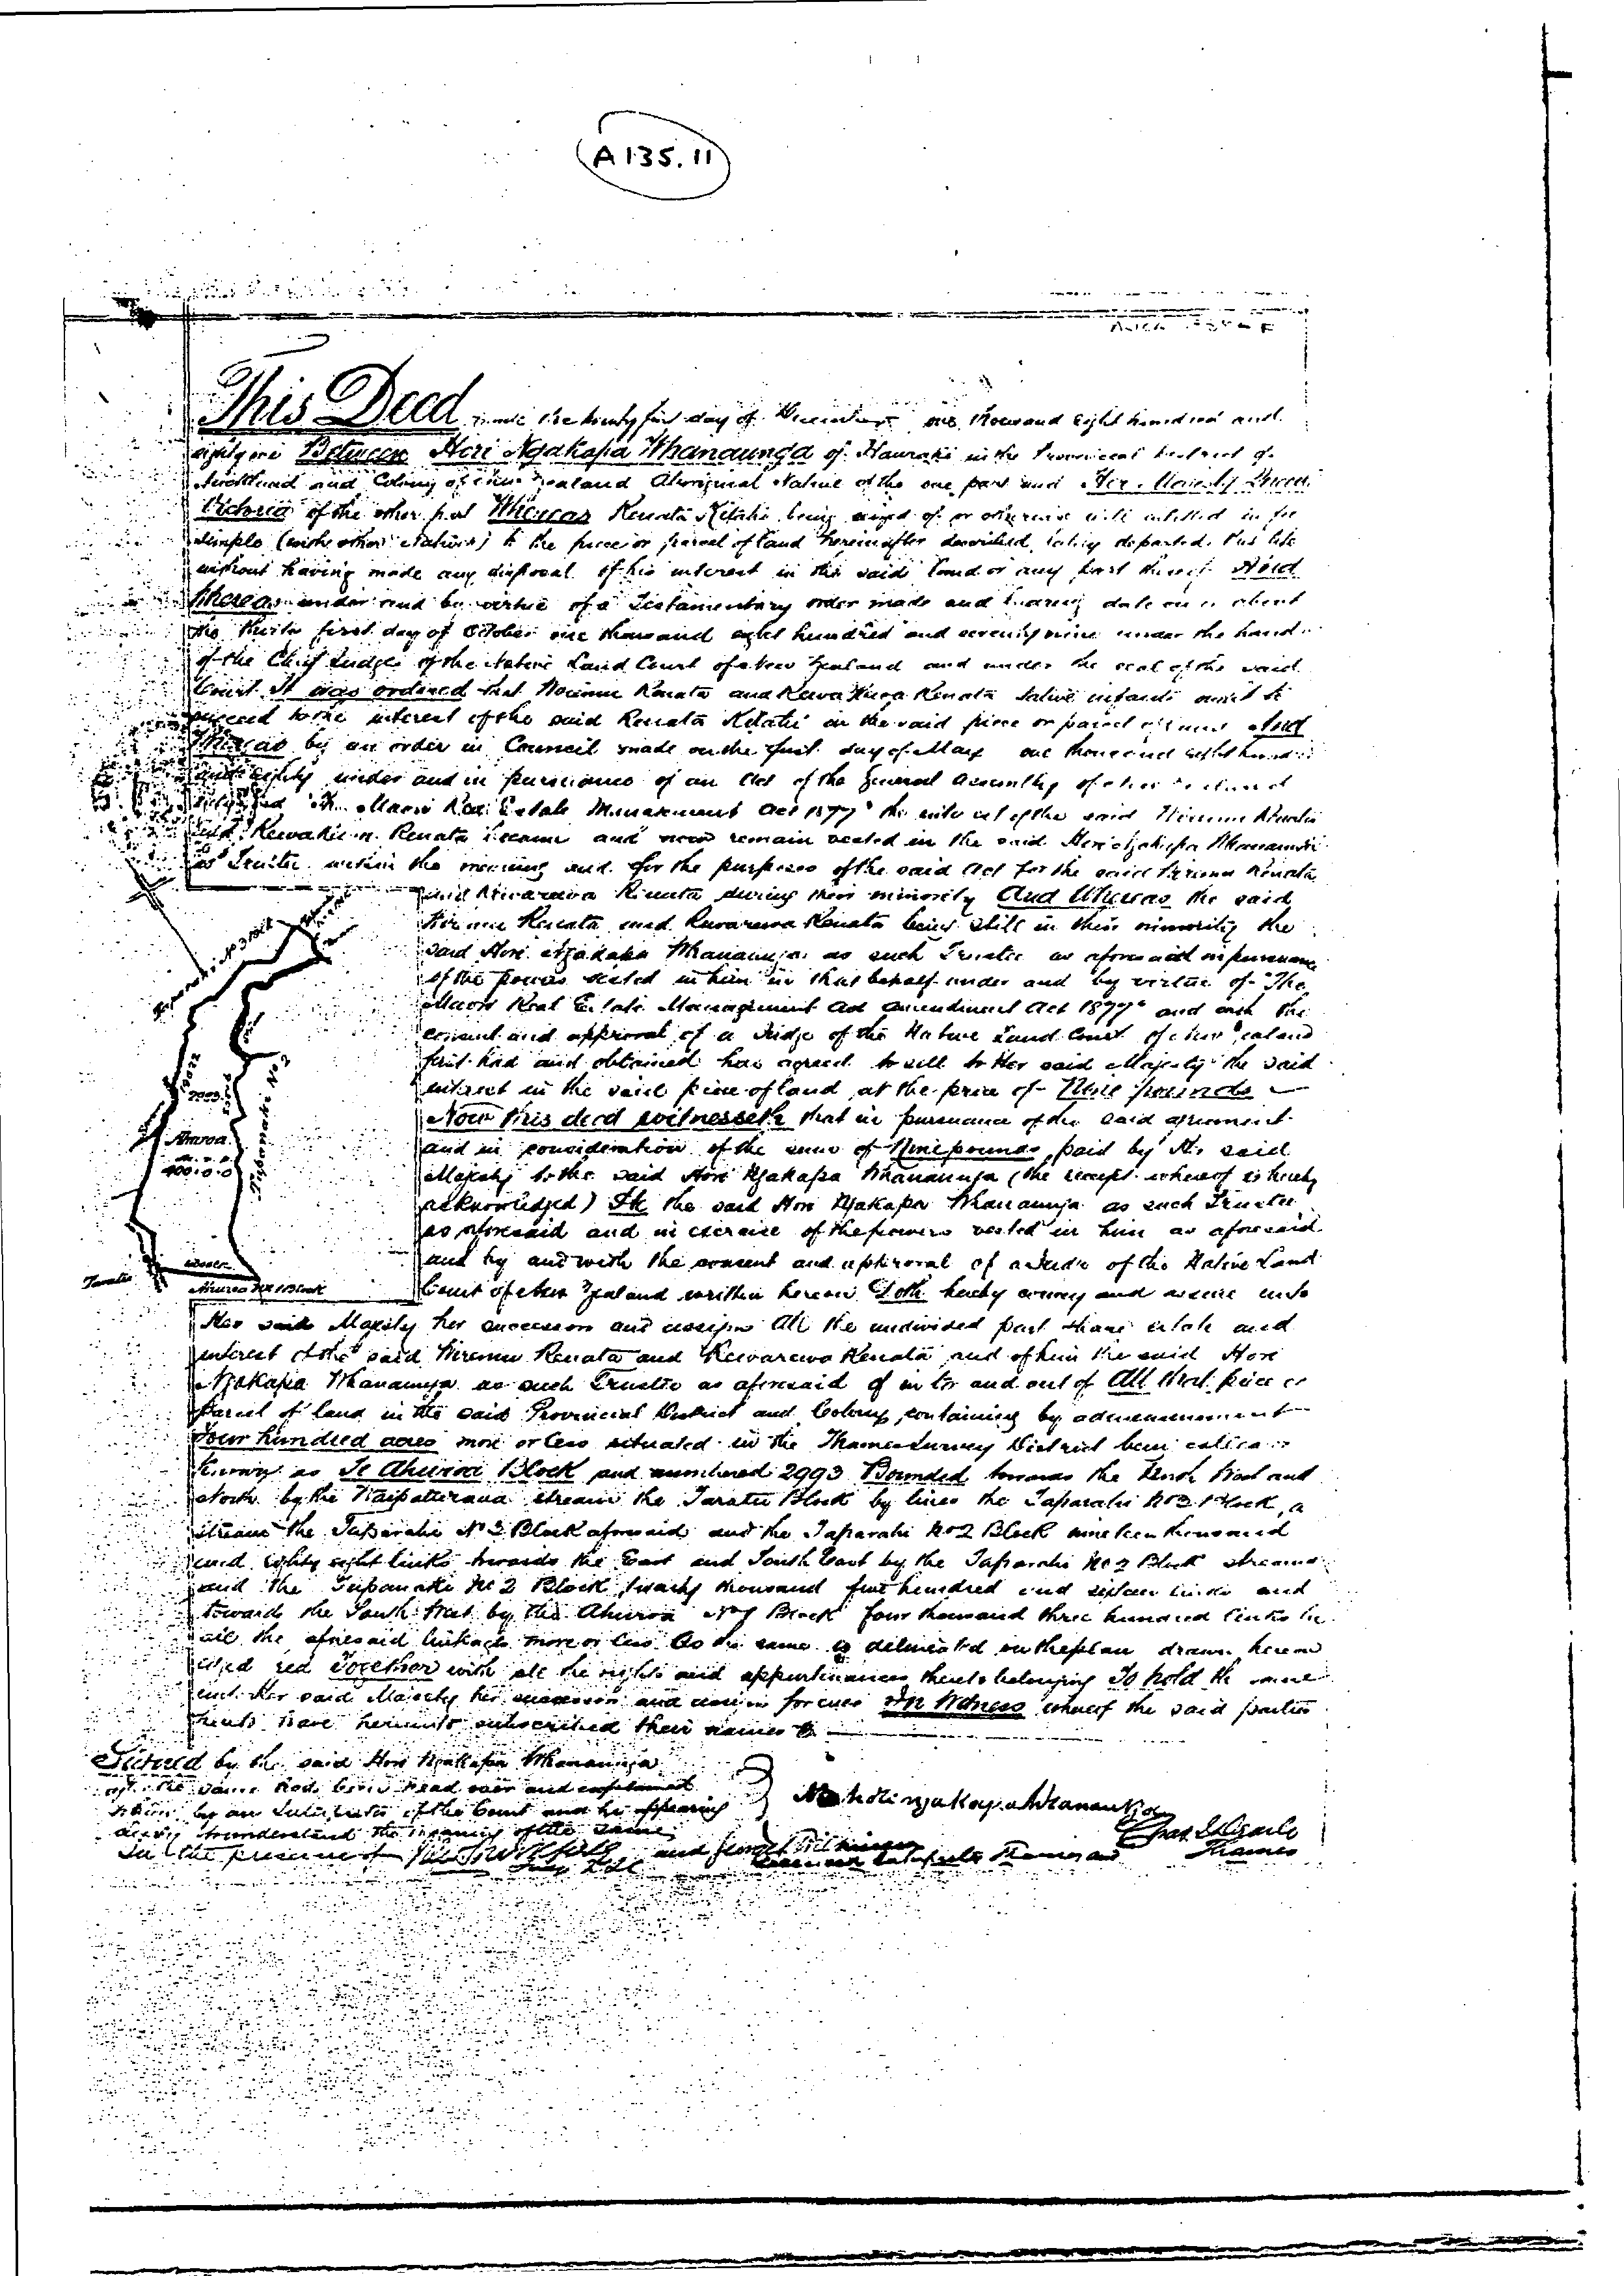 A135.11
This Deed made the twenty first day of December one thousand eight hundred and
eighty one Between Hori Ngakapa Whanaunga of Hauraki in the Provincial District of
Auckland and Colony of New Zealand Aboriginal Native of the one part and Her Majesty Queen
Victoria of the other part Whereas Renata Kitahi being seized of or otherwise well entitled in fee
simple (with other Natives) to the piece or parcel of land hereinafter described, lately departed this life
without having made any disposal of his interest in the said land or any part thereof And
Whereas under and by virtue of a Testamentary order made and bearing date on or about
the thirty first day of October one thousand eight hundred and seventy nine under the hand
of the Chief Judge of the Native Land Court of New Zealand and under the seal of the said
Court It was ordered that Wiremu Renata and Rewarewa Renata Native infants ought to
succeed to the interest of the said Renata Kitahi in the said piece or parcel of land And
Whereas by an order in Council made on the first day of May one thousand eight hundred
and eighty under and in pursuance of an Act of the General Assembly of New Zealand
"The Maori Real Estate Management Act 1877" the interest of the said Wiremu Renata
and Rewarewa Renata became and now remain vested in the said Hori Ngakapa Whanaunga
as Trustee within the meaning and for the purposes of the said Act for the said Wiremu Renata
and Rewarewa Renata during their minority And Whereas the said
Wiremu Renata and Rewarewa Renata being still in their minority the
said Hori Ngakapa Whanaunga as such Trustee as aforesaid in pursuance
of the powers vested in him in that behalf under and by virtue of "The
Maori Real Estate Management Act Amendment Act 1877" and with the
consent and approval of a Judge of the Native Land Court of New Zealand
first had and obtained has agreed to sell to Her said Majesty the said
interest in the said piece of land at the price of Nine pounds
Now this deed witnesseth that in pursuance of the said agreement
and in consideration of the sum of Nine pounds paid by Her said
Majesty to the said Hori Ngakapa Whanaunga (the receipt whereof is hereby
acknowledged) He the said Hori Ngakapa Whanaunga as such Trustee
as aforesaid and in exercise of the powers vested in him as aforesaid
and by and with the consent and approval of a Judge of the Native Land
Court of New Zealand written hereon Doth hereby convey and assure unto
Ahuroa
400.0.0
Taparahi No 2
Her said Majesty her successors and assigns All the undivided part share estate and
interest of the said Wiremu Renata and Rewarewa Renata and of him the said Hori
Ngakapa Whanaunga as such Trustee as aforesaid of in to and out of All that piece or
parcel of land in the said Provincial District and Colony containing by admeasurement
Four hundred acres more or less situated in the Thames Survey District being called or
known as Te Ahuroa Block and numbered 2993 Bounded towards the North West and
North by the stream the Taratu Block by lines the Taparahi No 3 Block, a
stream the Taparahi No 3 Block aforesaid and the Taparahi No 2 Block nineteen thousand
and eighty eight links towards the East and South East by the Taparahi No 2 Block stream
and the Taparahi No 2 Block twenty thousand five hundred and sixteen links and
towards the South West by the Ahuroa No 1 Block four thousand three hundred links be
all the aforesaid linkages more or less As the same is delineated on the plan drawn hereon
edged red Together with all the rights and appurtenances thereto belonging To hold the same
unto Her said Majesty her successors and assigns for ever In Witness whereof the said parties
hereto have hereunto subscribed their names
Signed by the said Hori Ngakapa Whanaunga
after the same had been read over and explained
to him by an Interpreter of the Court and he appearing
clearly to understand the meaning of the same
In the presence of
and George Wilkinson
Licensed Interpreter Thames and
Na Hori ngakapa Whanaunga
Thames